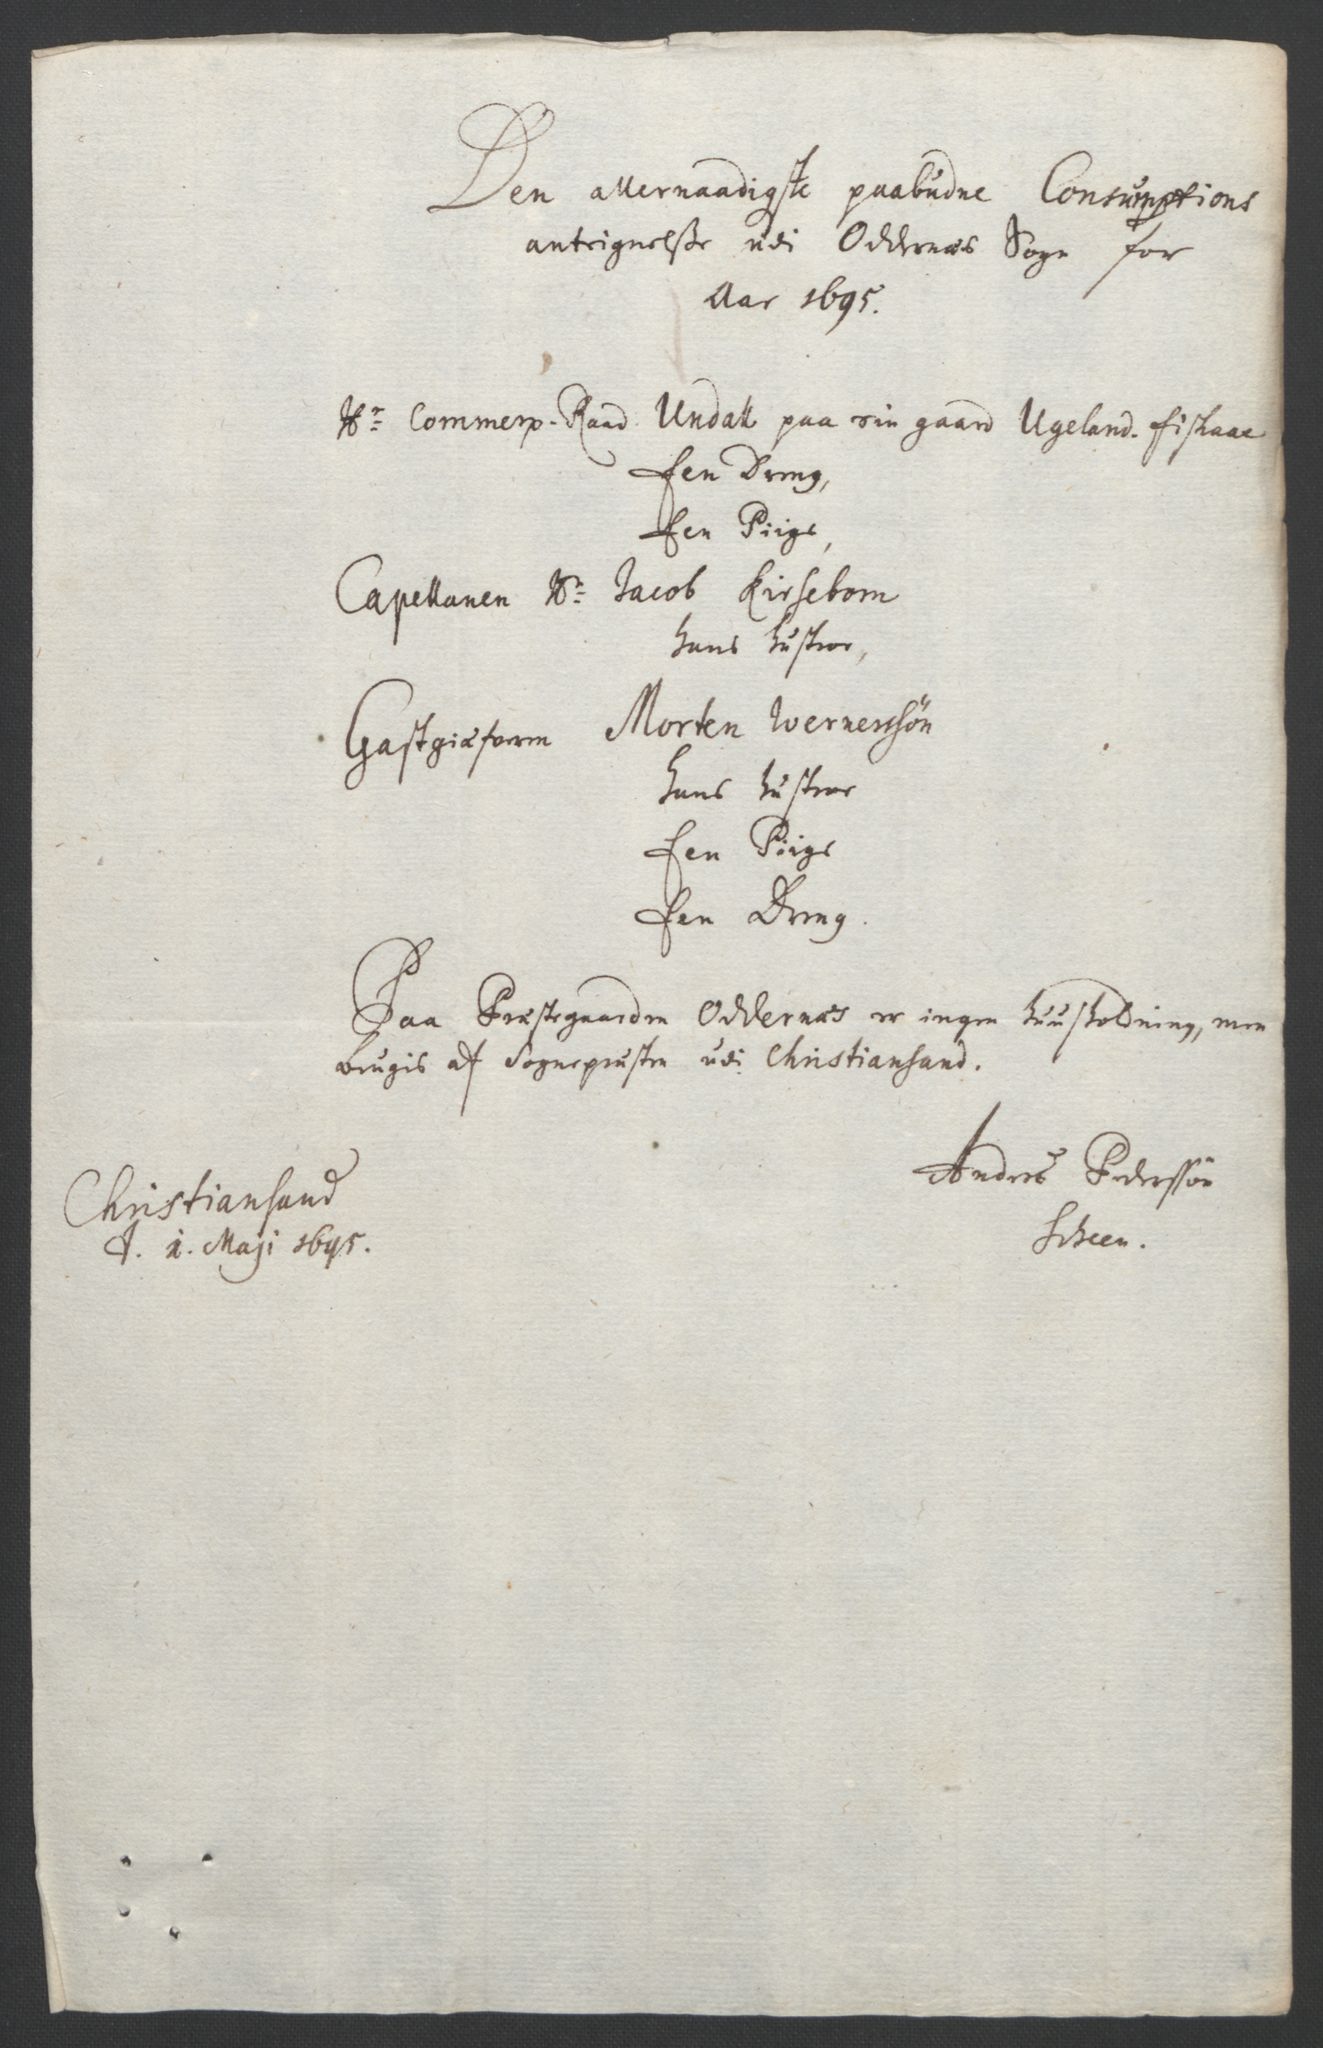 Den allernaadigste paabudne Consumptions
anteignelsse udi Oddernæs Sogn for
Aar 1695.
Hr: Commerp. Raad Undall paa sin gaard Ugeland. Fiskaae
Een Dreng,
Een Piige,
Capellanen Hr: Jacob Kirsebom
hans hustroe,
Gastgiæfveren Morten Wernerssön
hans hustroe
Een Piige
Een Dreng.
Paa Præstegaarden Oddernæs er ingen huusholdning, men
brugis af Sognepræsten udi Christiansand.
Anders Pederssön
Scheen.
Christiansand
d. 1. Maji 1695.